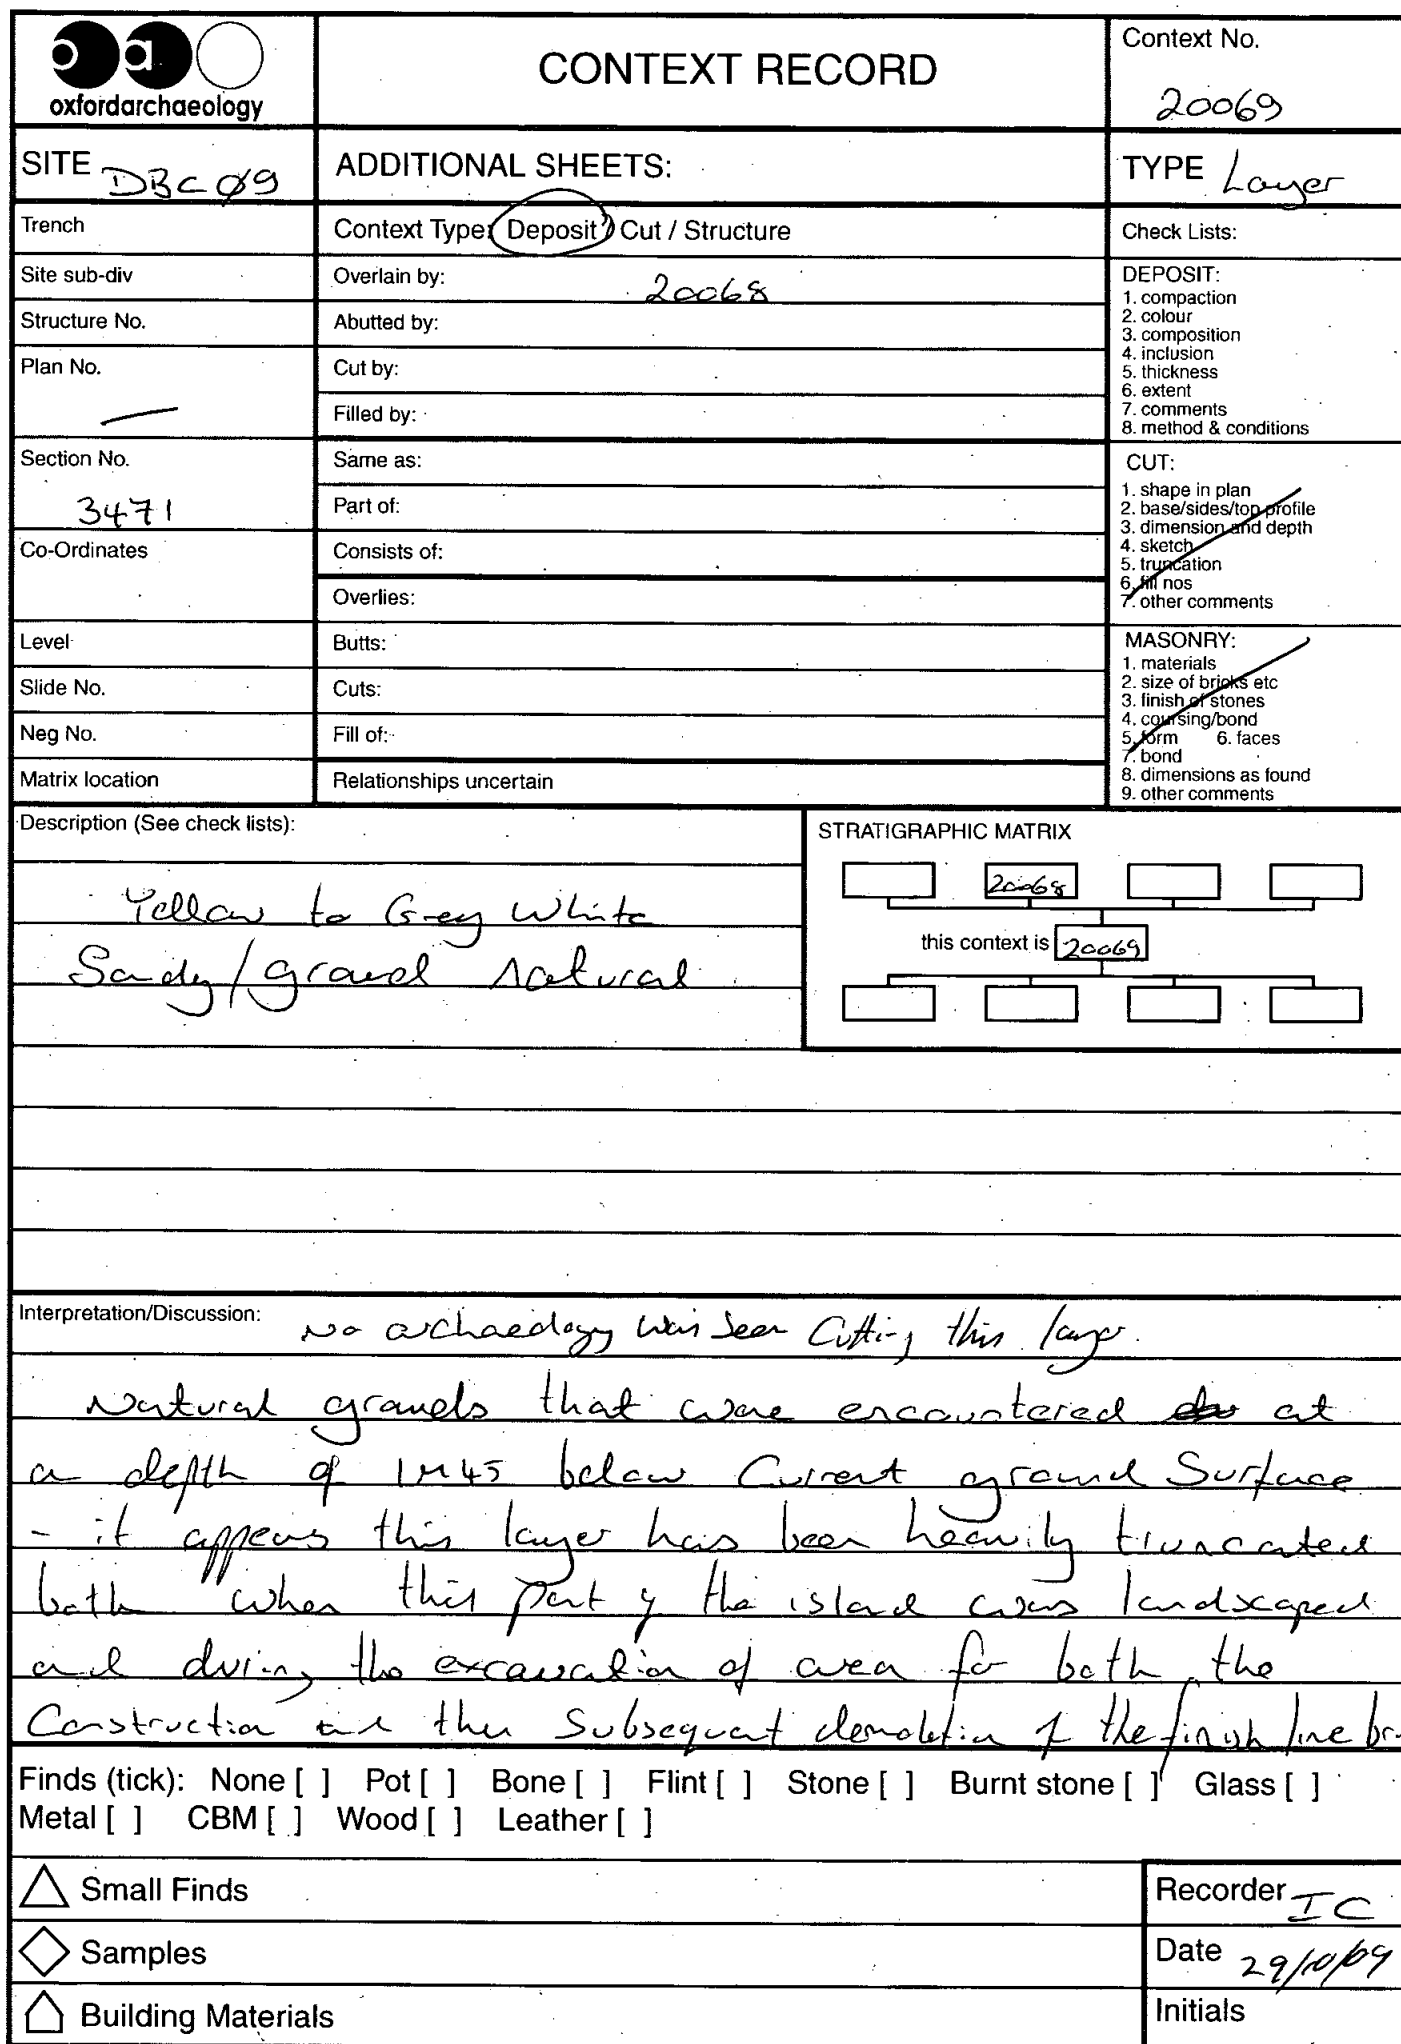 oao
oxfordarchaeology
CONTEXT RECORD
Context No.
20069
SITE DBC Ø9
ADDITIONAL SHEETS:
TYPE Layer
Trench
Context Type: Deposit / Cut / Structure
Check Lists:
Site sub-div
Overlain by: 20068
Structure No.
Abutted by:
Plan No. —
Cut by:
Filled by:
Section No.
3471
Same as:
Part of:
Co-Ordinates
Consists of:
Overlies:
Level
Butts:
Slide No.
Cuts:
Neg No.
Fill of:
Matrix location
Relationships uncertain
DEPOSIT:
1. compaction
2. colour
3. composition
4. inclusion
5. thickness
6. extent
7. comments
8. method & conditions
CUT:
1. shape in plan
2. base/sides/top profile
3. dimension and depth
4. sketch
5. truncation
6. fill nos
7. other comments
MASONRY:
1. materials
2. size of bricks etc
3. finish of stones
4. coursing/bond
5. form 6. faces
7. bond
8. dimensions as found
9. other comments
Description (See check lists):
Yellow to Grey White
Sandy/gravel natural
STRATIGRAPHIC MATRIX
20068
this context is 20069
Interpretation/Discussion: No archaeology was seen Cutting this layer.
Natural gravels that were encountered at
a depth of 1M45 below Current ground Surface
- it appears this layer has been heavily truncated
both when this part of the island was landscaped
and during the excavation of area for both the
Construction and then Subsequent demolition of the finish line br
Finds (tick): None [ ] Pot [ ] Bone [ ] Flint [ ] Stone [ ] Burnt stone [ ] Glass [ ]
Metal [ ] CBM [ ] Wood [ ] Leather [ ]
Small Finds
Recorder IC
Samples
Date 29/10/09
Building Materials
Initials